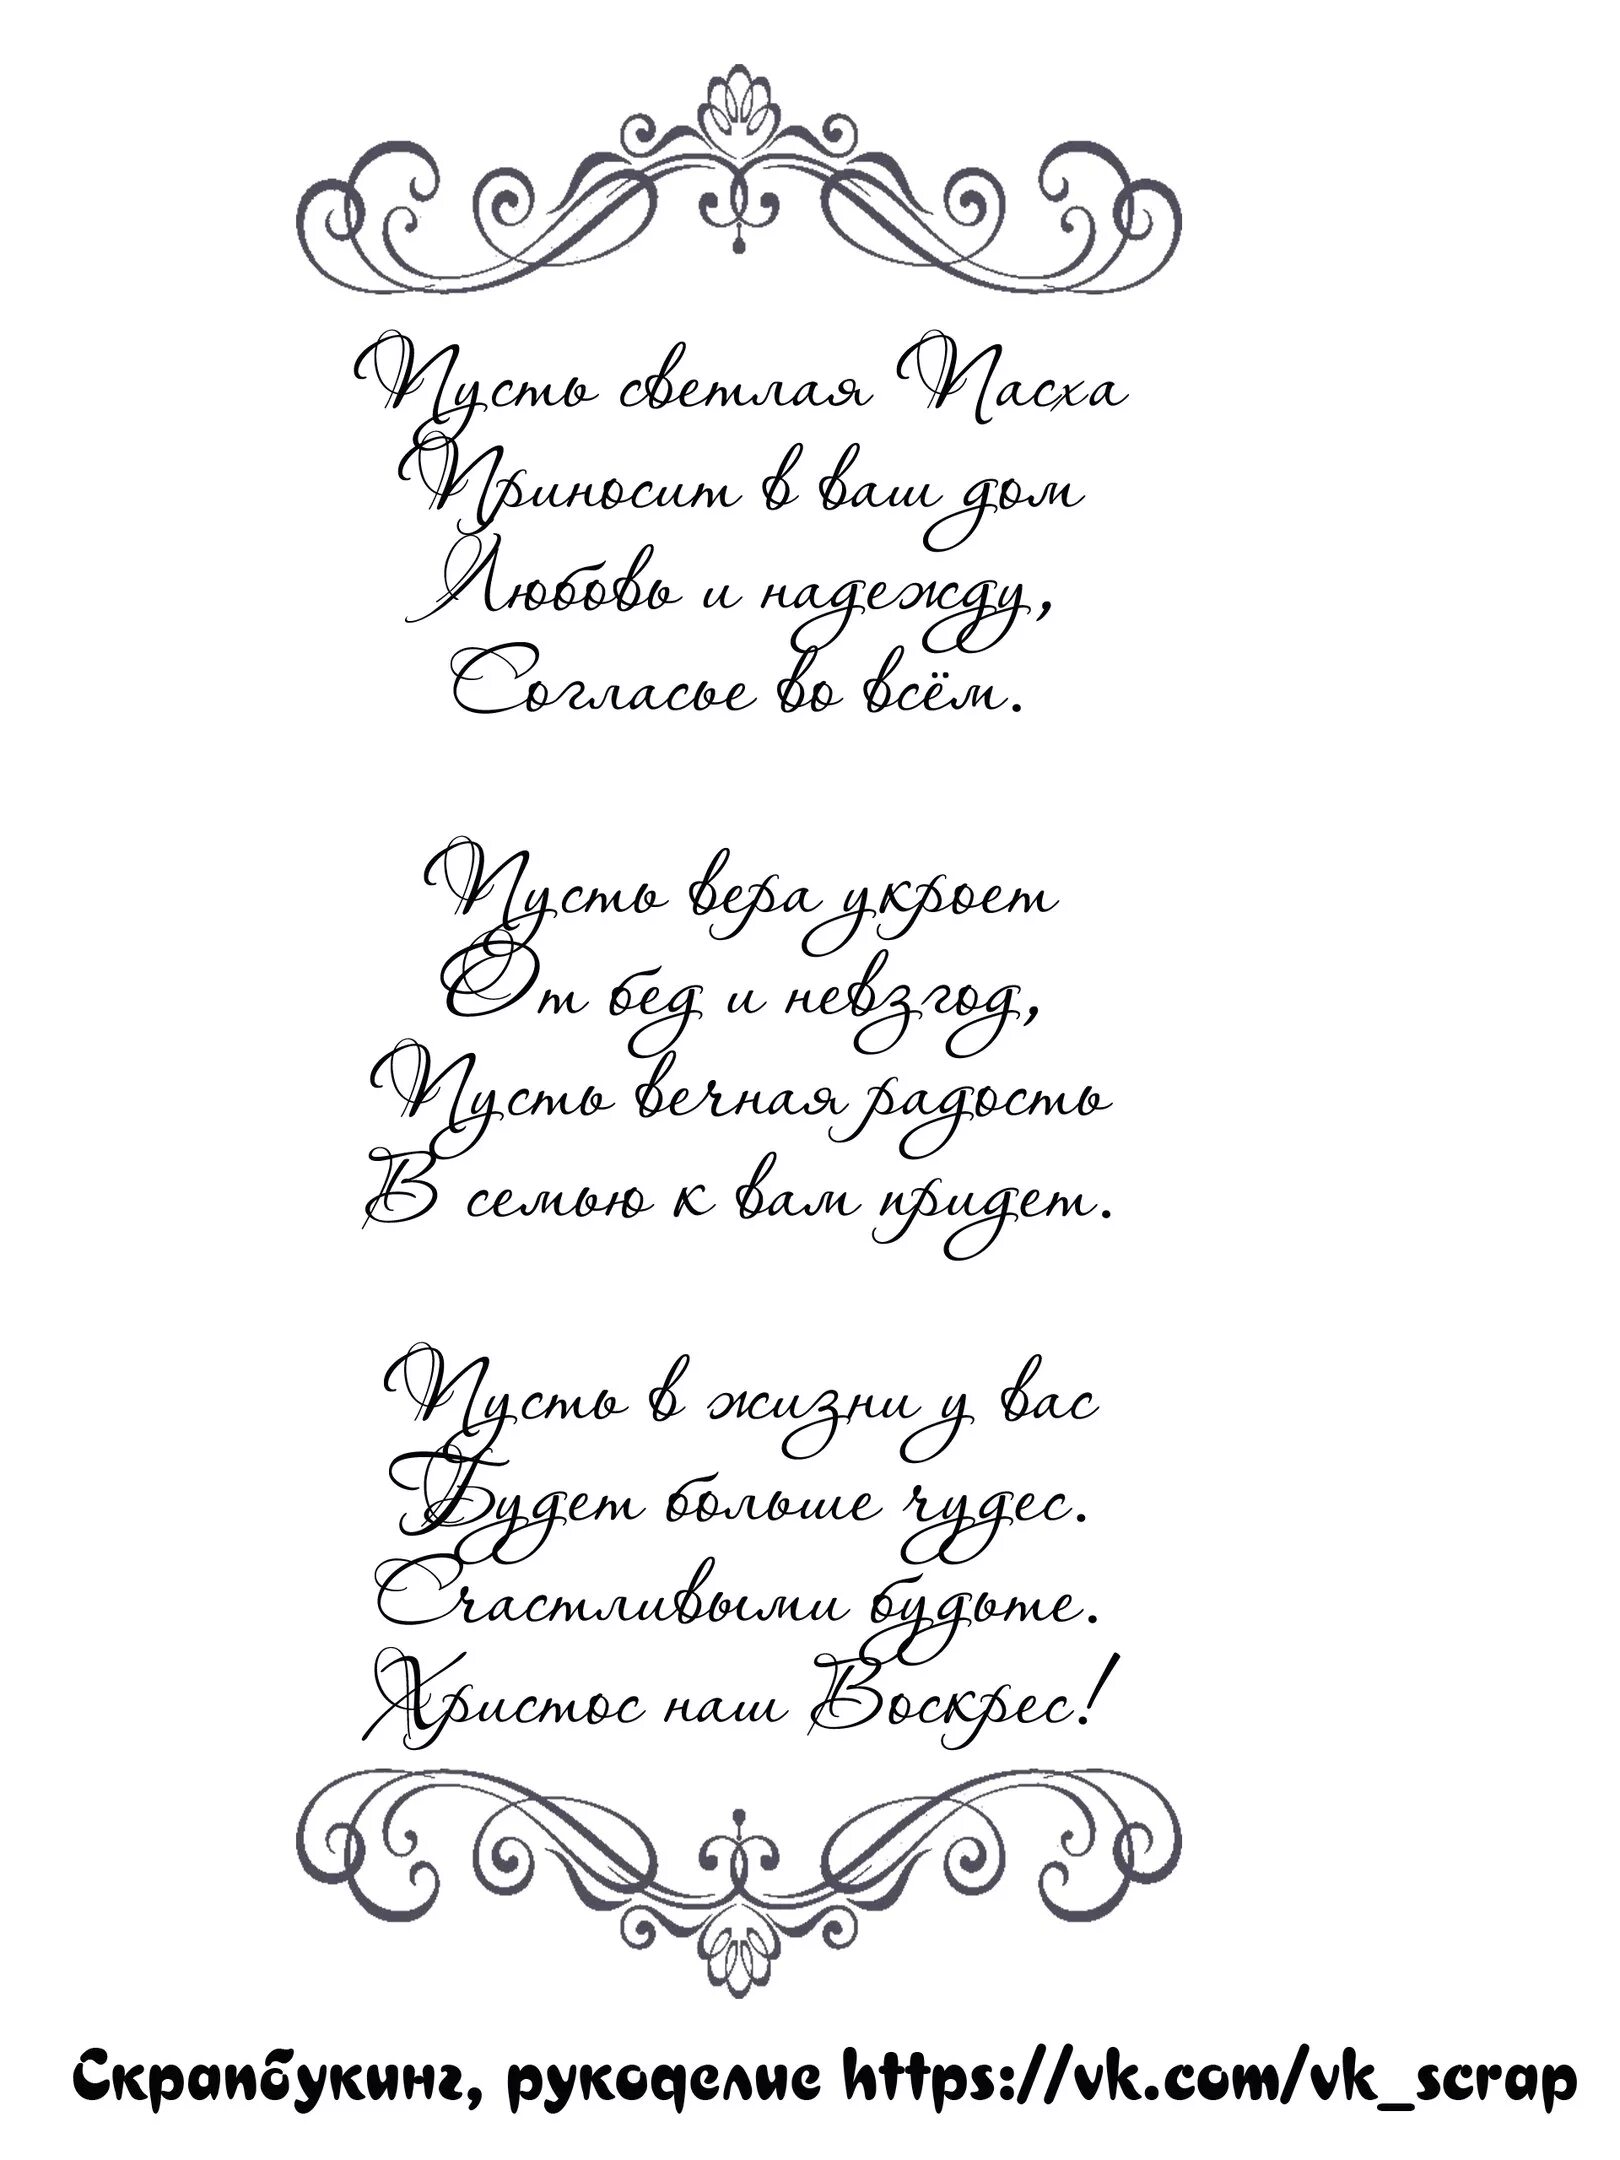 Пусть светлая Пасха
Приносит в ваш дом
Любовь и надежду,
Согласье во всём.
Пусть вера укроет
От бед и невзгод,
Пусть вечная радость
В семью к вам придет.
Пусть в жизни у вас
Будет больше чудес.
Счастливыми будьте.
Христос наш Воскрес!
Скрапбукинг, рукоделие https://vk.com/vk_scrap